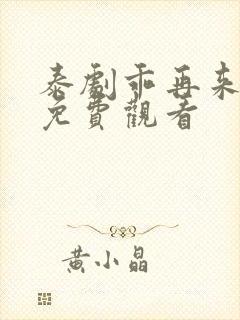 泰劇乖再來
免費觀看
黄小晶